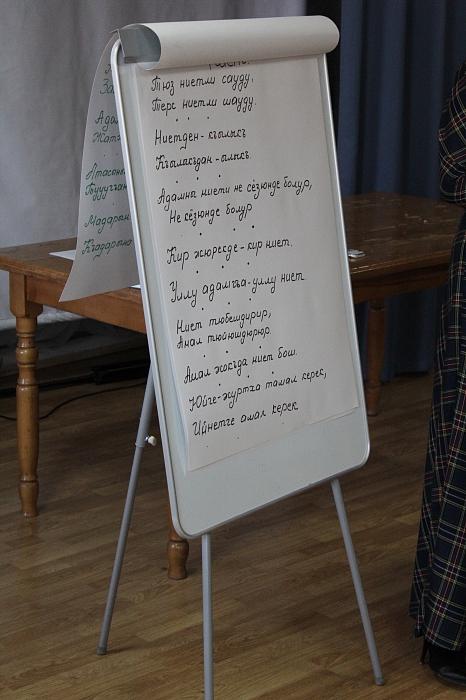 Тюз ниетли сауду,
Терс ниетли шауду.
Ниетден - къылыкъ
Къылыкъдан - алыкъ.
Адамны ниети не сёзюнде болур,
Не кёзюнде болур
Кир жюрекде - кир ниет.
Уллу адамгъа - уллу ниет
Ниет тюбешдирир,
Амал тюйюшдюрюр.
Амал жокъда ниет бош.
Юйге-журтха тамал керек,
Ийнетге амал керек
Атасыны
Мадарына
Къадарына